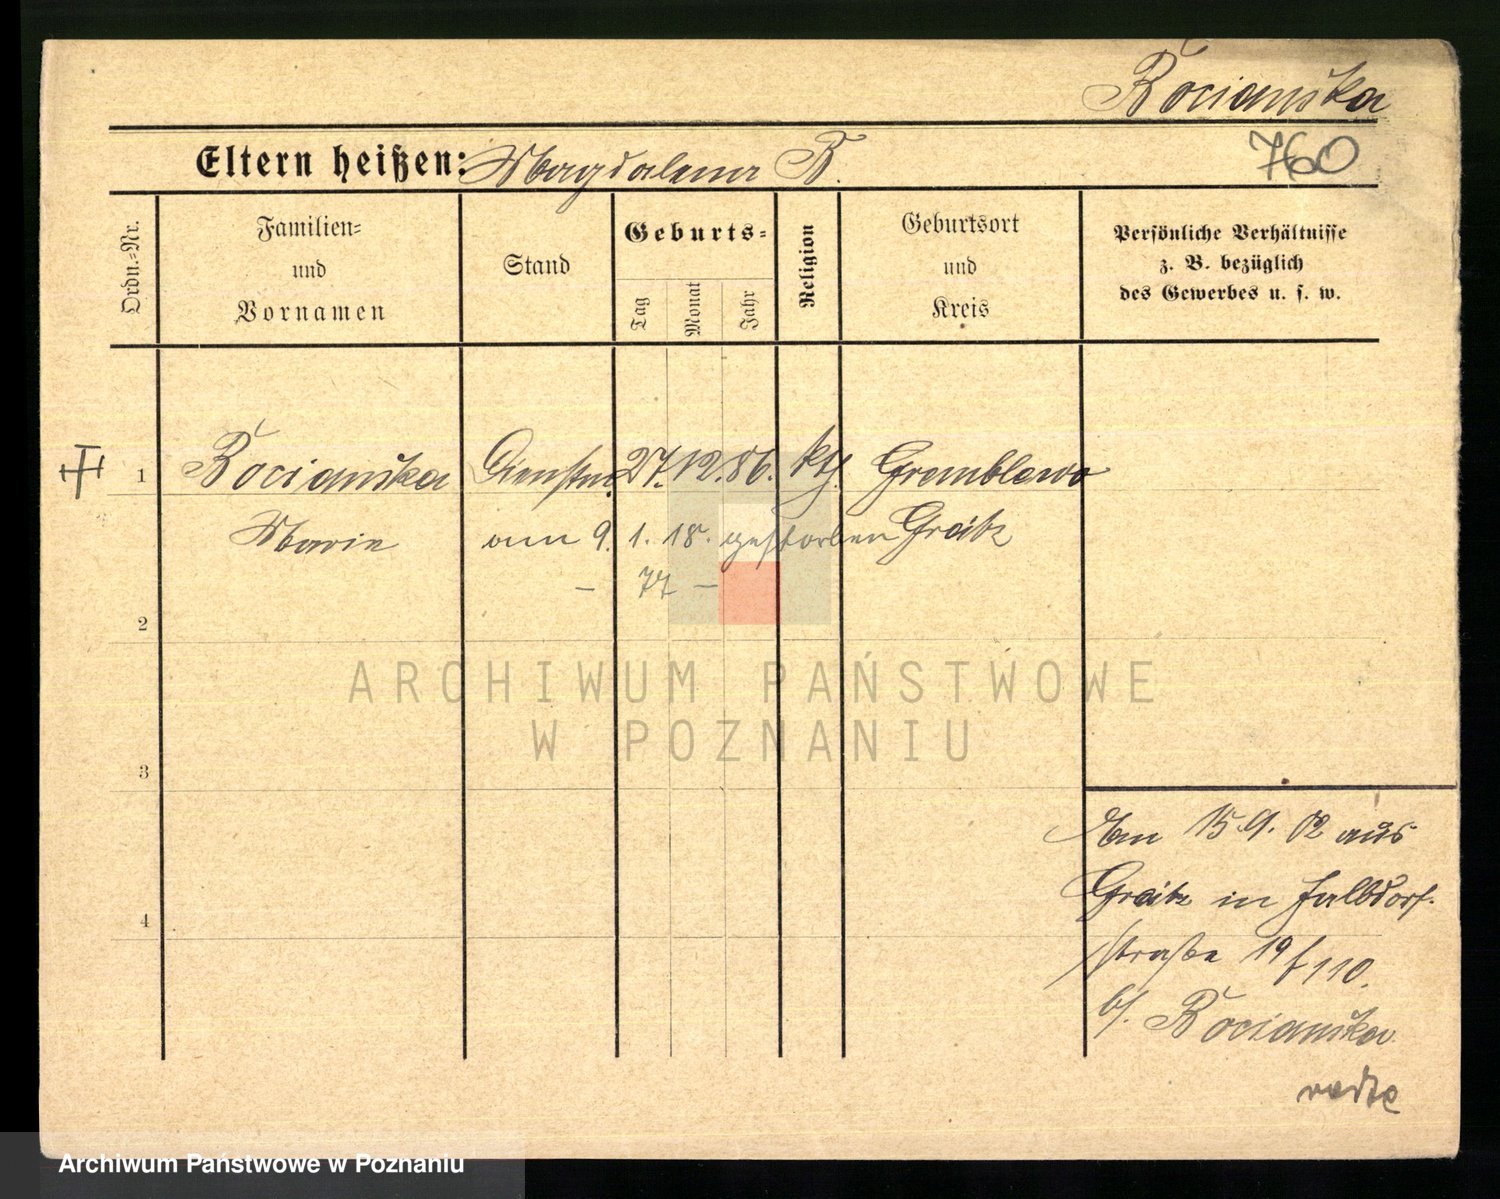 Bocianska
760
Eltern heißen: Magdalena B.
Ordn.-Nr.
Familien-
und
Vornamen
Stand
Geburts-
Tag
Monat
Jahr
Religion
Geburtsort
und
Kreis
Persönliche Verhältnisse
z. B. bezüglich
des Gewerbes u. s. w.
1 Bocianska Dienstm. 27. 12. 86. kth. Gremblewo
Marie am 9. 1. 18. gestorben Grätz
– 77 –
2
3
4
Am 15.9.02 aus
Grätz in
straße 19 f 110.
b/. Bocianska
ARCHIWUM PAŃSTWOWE
W POZNANIU
Archiwum Państwowe w Poznaniu